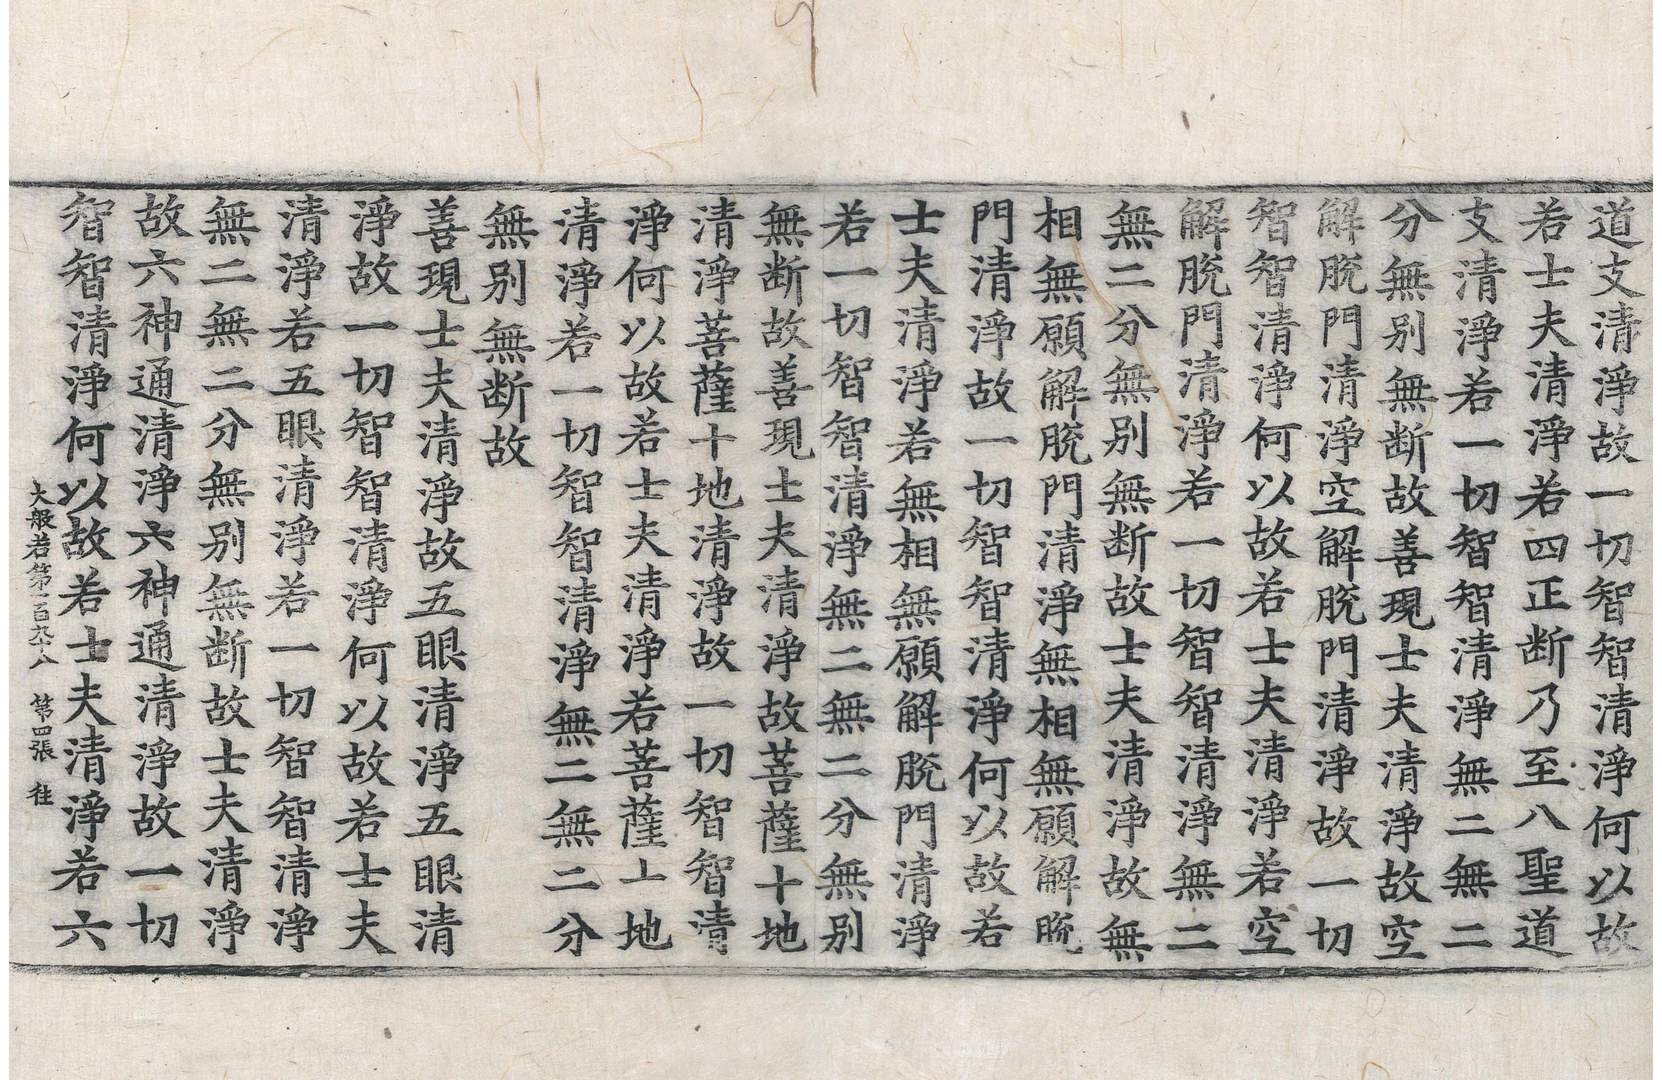 道支清淨故一切智智清淨何以故
若士夫清淨若四正断乃至八聖道
支清淨若一切智智清淨無二無二
分無别無断故善現士夫清淨故空
解脫門清淨空解脫門清淨故一切
智智清淨何以故若士夫清淨若空
解脫門清淨若一切智智清淨無二
無二分無别無断故士夫清淨故無
相無願解脫門清淨無相無願解脫
門清淨故一切智智清淨何以故若
士夫清淨若無相無願解脫門清淨
若一切智智清淨無二無二分無别
無断故善現士夫清淨故菩薩十地
清淨菩薩十地清淨故一切智智清
淨何以故若士夫清淨若菩薩十地
清淨若一切智智清淨無二無二分
無别無断故
善現士夫清淨故五眼清淨五眼清
淨故一切智智清淨何以故若士夫
清淨若五眼清淨若一切智智清淨
無二無二分無别無断故士夫清淨
故六神通清淨六神通清淨故一切
智智清淨何以故若士夫清淨若六
大般若第一百九十八 第四張 往